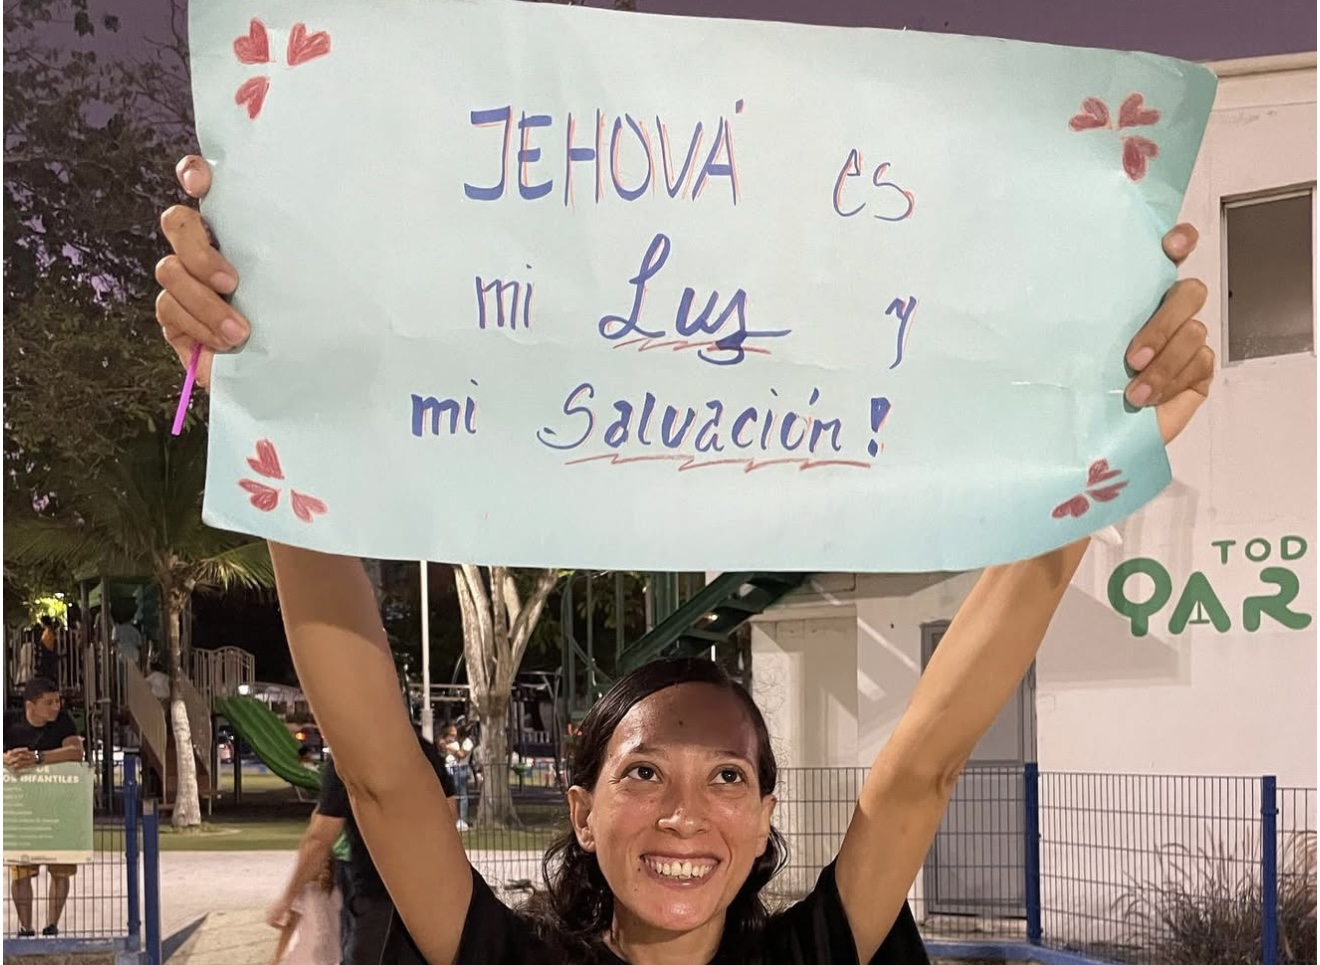 JEHOVÁ es
mi Luz y
mi Salvación!
TOD
PAR
DE
OS INFANTILES